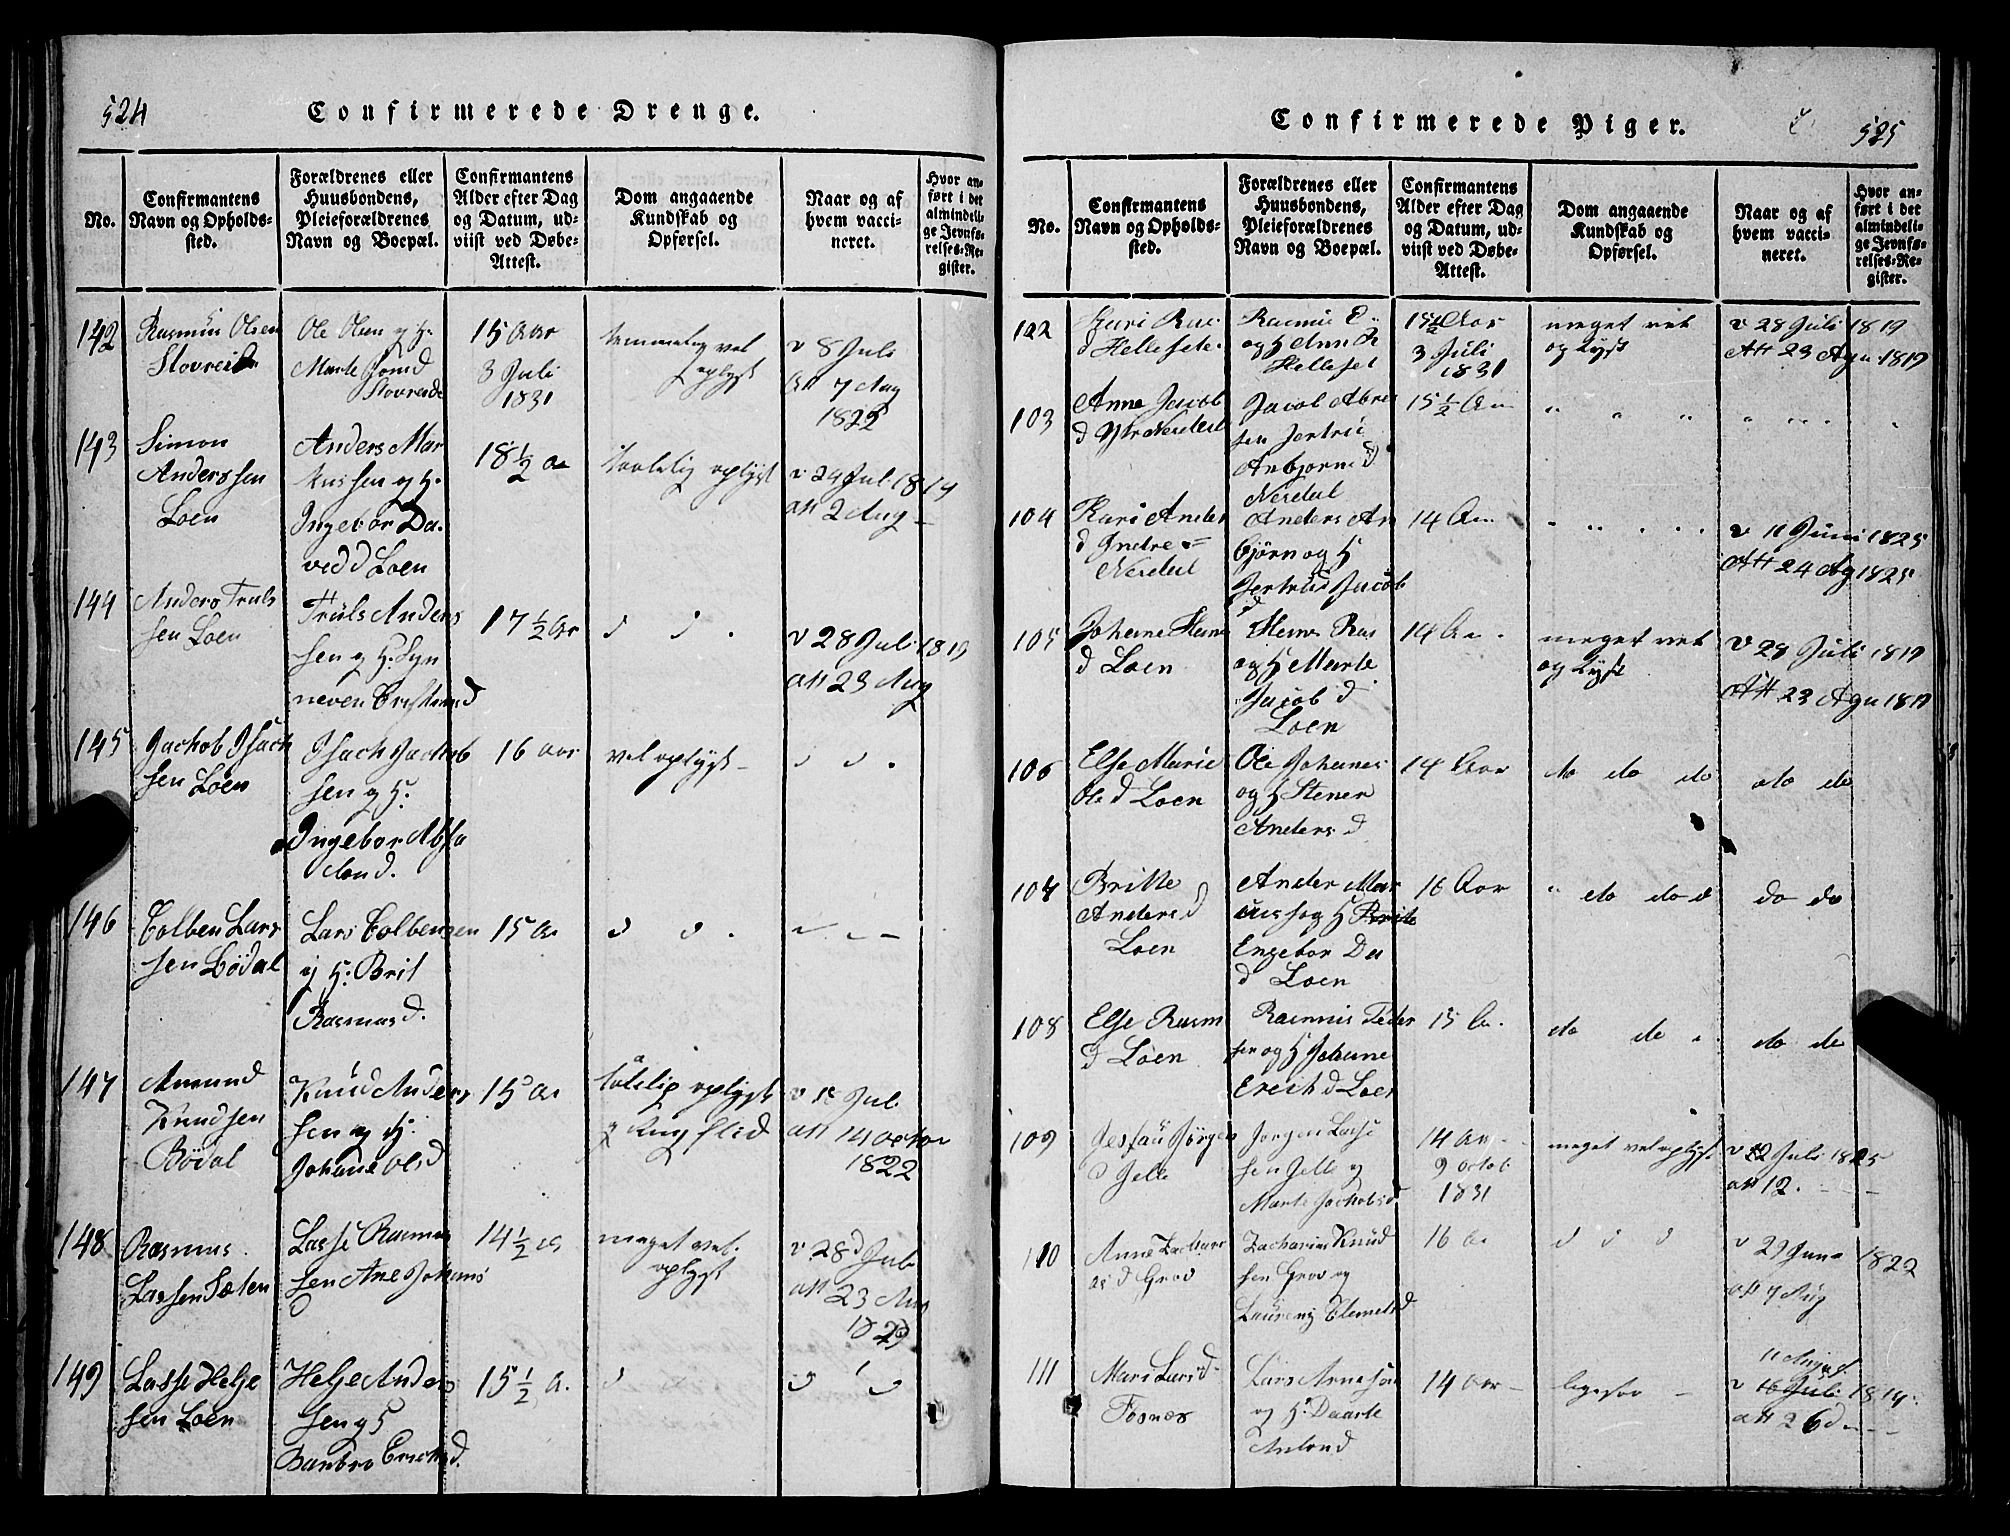 524
Confirmerede Drenge.
No.
Confirmantens
Navn og Opholds-
sted.
Forældrenes eller
Huusbondens,
Pleieforældrenes
Navn og Boepæl.
Confirmantens
Alder efter Dag
og Datum, ud-
viist ved Døbe-
Attest.
Dom angaaende
Kundskab og
Opførsel.
Naar og af
hvem vacci-
neret.
Hvor an-
ført i det
almindeli-
ge Jevnfø-
relses-Re-
gister.
142
Rasmus Olsen
Ole Olsen og H.
Marte
15 Aar
3 Juli
1831
temmelig vel
oplyst
v 8 Juli
att 7 Aug
1822
143
Simon
Anderssen
Loen
Anders Mar
kussen og H.
Ingebor Da
ved d Loen
18 1/2 Aa
taalelig oplyst
v 29 Jul 1819
att 2 Aug —
144
Anders Truls
sen Loen
Truls Anders
sen og H. Syn
neven
17 1/2 Ar
d d .
v 28 Juli 1819
att 23 Aug
145
Jachob Isach
sen Loen
Isach Jachob
sen og H:
Ingebor Absa
lon d.
16 aar
vel oplyst —
146
Colben Lars
sen Bødal
Lars Colbensen
og H: Brit
Rasmus d.
15 Ar
d d .
147
Amund
Knudsen
Bødal
Knud Anders
sen og H:
Johane Ols d
15 Ar
tålelig oplyst
og flid
att 14 octor
1822
148
Rasmus
Lassen Sæten
Lasse Rasmus
sen Ane Johans
d
14 1/2 Ar
meget vel
oplyst
v 28 d Juli
att 23 Aug
149
Lasse Helje
sen Loen
Helje Anders
sen og H
15 1/2 A.
d
525
Confirmerede Piger.
No.
Confirmantens
Navn og Opholds-
sted.
Forældrenes eller
Huusbondens,
Pleieforældrenes
Navn og Boepæl.
Confirmantens
Alder efter Dag
og Datum, ud-
viist ved Døbe-
Attest.
Dom angaaende
Kundskab og
Opførsel.
Naar og af
hvem vacci-
neret.
Hvor an-
ført i det
almindeli-
ge Jevnfø-
relses-Re-
gister.
102
d Hellesete
Rasmus
og H Anne
Helleset
15 1/2 Aar
3 Juli
1831
meget vel
oplyst
v 28 Juli 1819
Att 23 Agu 1819
103
Anne Jacob
d Ytre Nesdal
Jacob
sen Jertru
Anbjorns d
Nesdal
15 1/2 Aar
104
Kari Anders
d Indre
Nesdal
Anders An
bjørn og H
Jertrud Jacob
d
14 Aar
v 11 Juni 1825
Att 24 Ag 1825
105
d Loen
og H Marte
Jacob d
Loen
14 Aar
meget vel
oplyst
v 28 Juli 1819
Att 23 Agu 1819
106
Else Marie
Ole d Loen
Ole Johanes
og H Stener
Anders d
14 Aar
do do do
do do
107
Britte
Anders d
Loen
Anders Mar
cus og H Brite
Engebor Da
d Loen
16 Aar
" do do d
do do
108
Else Rasm
d Loen
Rasmus Peder
sen og H Johane
Erich d Loen
15 Aar
do do
do do
109
d Jelle
Jørgen Lasse
sen Jelle og
Marte Jachobs d
14 Aar
9 octob:
1831
meget vel oplyst
v 12 Juli 1825
att 12. — —
110
Anne Zachari
as d Grov
Zacharias Knud
sen Grov og
16 Ar
d d d
v 29 Juna 1822
att 7 Aug
111
Mari Lars d
Fosnes
Lars Arneson
og H: Daarte
14 aar —
ligesaa —
11 August
v 16 Juli 1819
att 26 d — —